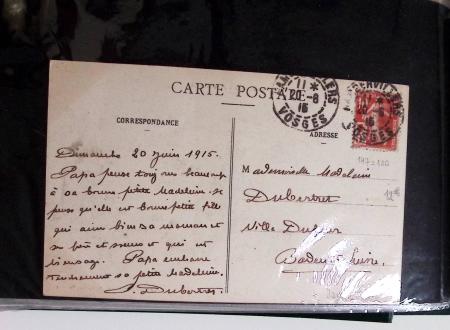 CARTE POSTALE
CORRESPONDANCE
ADRESSE
11 *
20-6
15
VOSGES
VOSGES
Dimanche 20 Juin 1915.
Papa pense toujours beaucoup
à sa bonne petite Madeleine. Je
pense qu'elle est bonne petite fille
qui aime bien sa maman et
se et qui est
bien sage. Papa embrasse
tendrement sa petite Madeleine.
Dubertret
Mademoiselle Madeleine
Dubertret
Villa